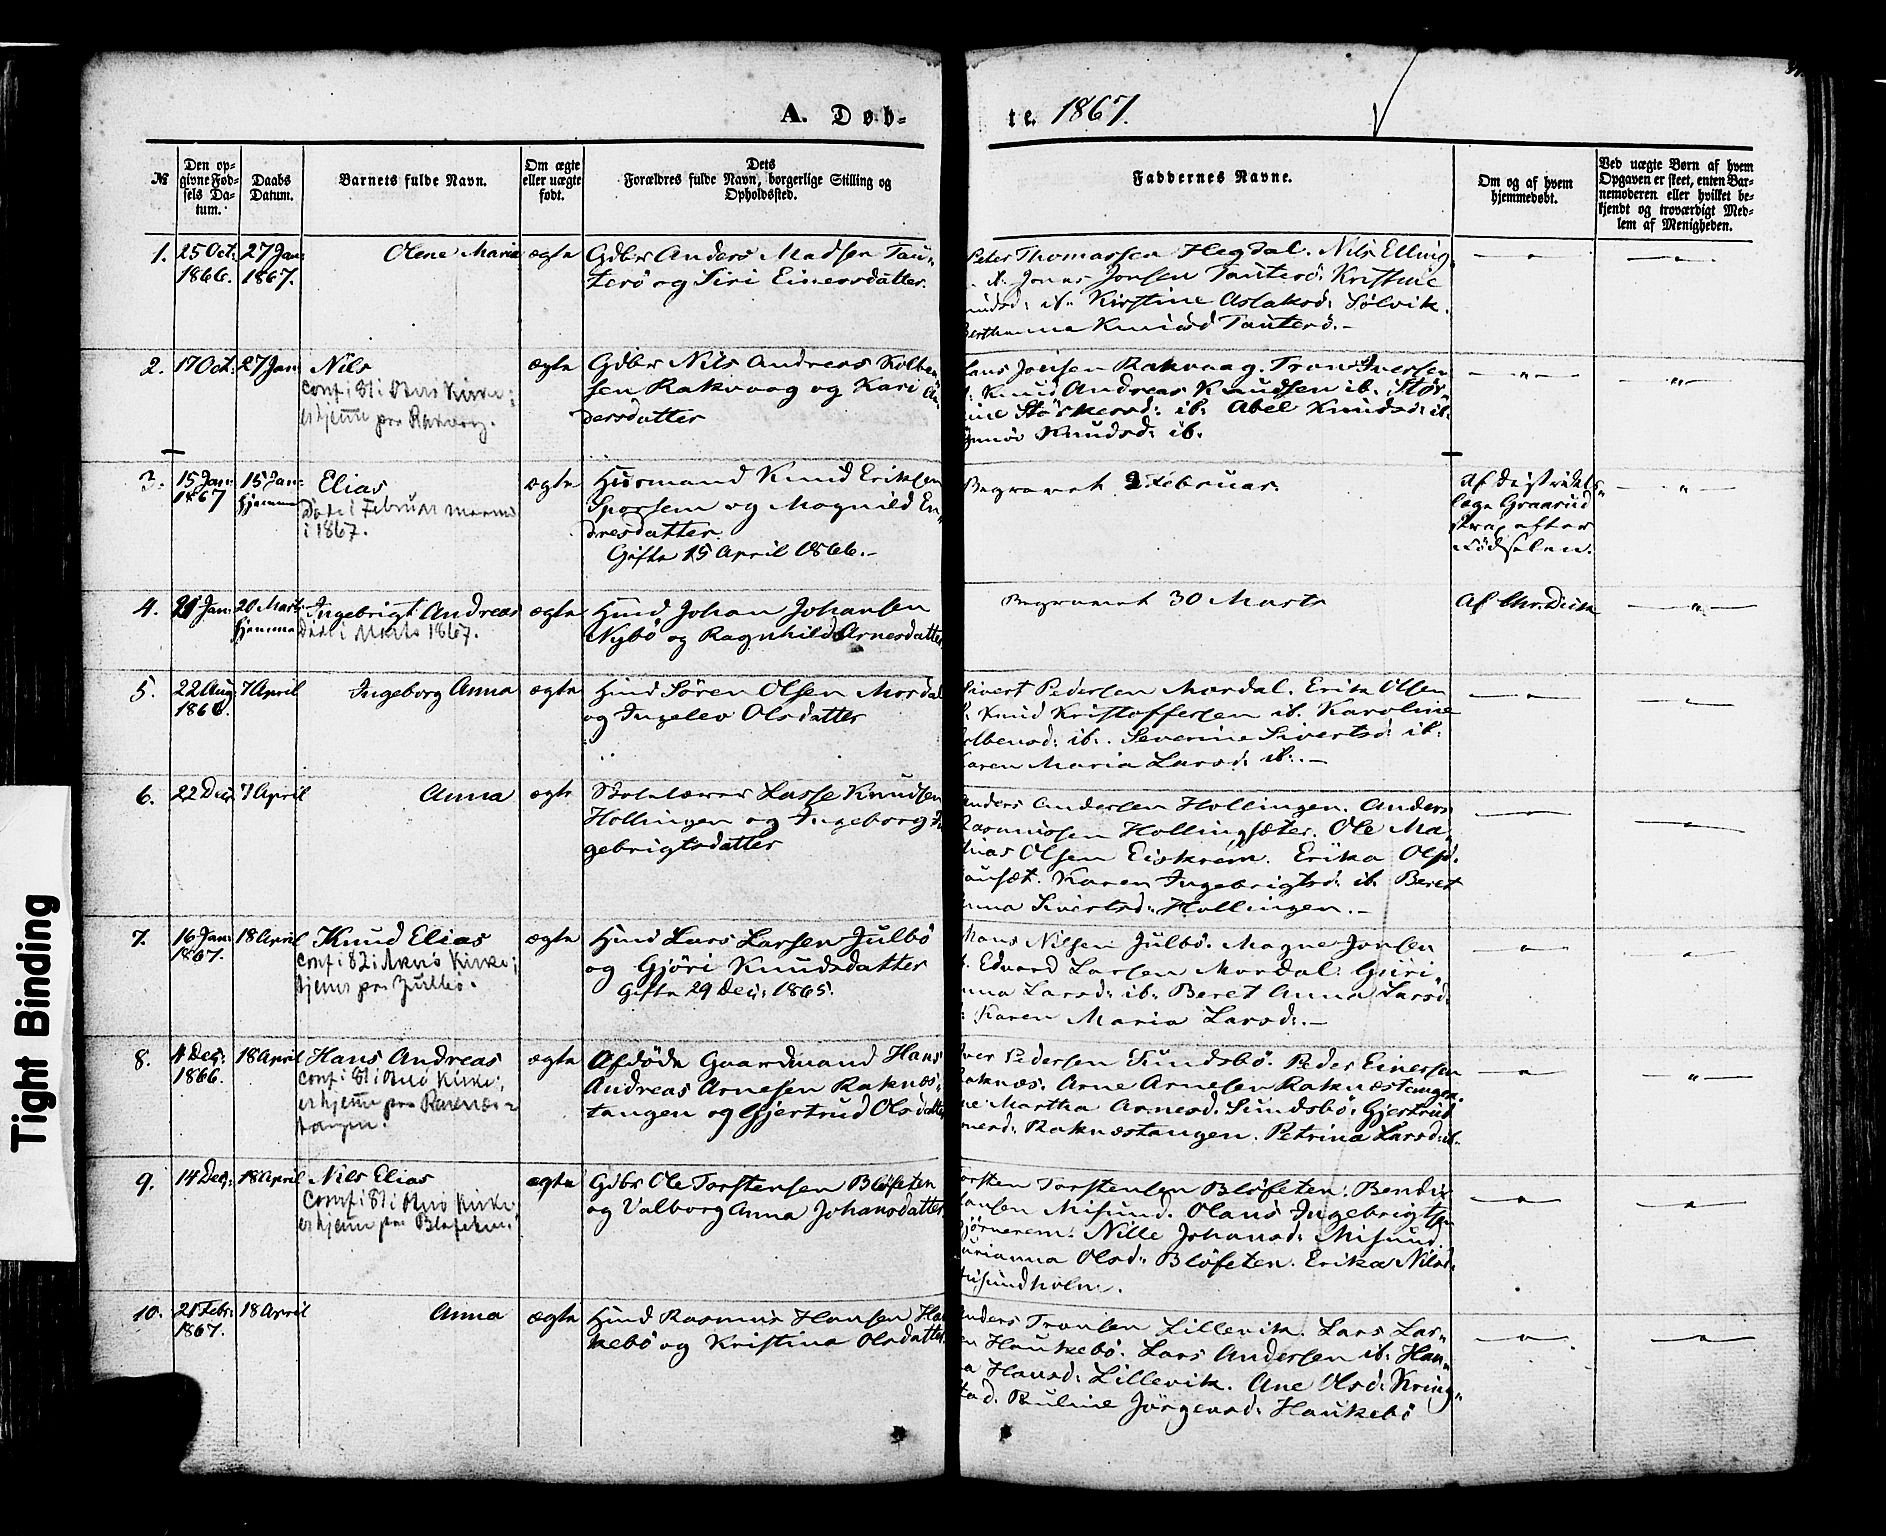 A. Døb-
te. 1867.
№
Den op-
givne Fød-
sels Da-
tum.
Daabs
Datum.
Barnets fulde Navn.
Om ægte
eller uægte
født.
Dets
Forældres fulde Navn, borgerlige Stilling og
Opholdssted.
Faddernes Navne.
Om og af hvem
hjemmedøbt.
Ved uægte Børn af hvem
Opgaven er skeet, enten Bar-
nemoderen eller hvilket be-
kjendt og troværdigt Med-
lem af Menigheden.
1.
25 Oct:
1866.
27 Jan:
1867.
Olene Maria
ægte
Gdbr Anders Madsen Tau-
terö og Siri Einersdatter.
Peter Thomassen Hegdal. Nils Elling
Jonas Jonsen Tauterö. Kristine
ib. Kirstine Aslaksd: Sölvik.
Knudsd Tauterö.-
2.
17 Oct:
27 Jan:
Nils
conf: i 81 i Akerö Kirke;
er hjemme paa Rakvaag.
ægte
Gdbr Nils Andreas Kolben-
sen Rakvaag og Kari An-
dersdatter
Jonsen Rakvaag. Tron Iversen
Knud Andreas Knudsen ib. Stör-
ine Störkersd: ib: Abel Knudsd: ib.
Knudsd: ib.
3.
15 Jan:
1867
15 Jan:
hjemme
Elias
Döde i Februar maaned
i 1867.
ægte
Husmand Knud Eriksen
Sporsem og Magnild En-
dresdatter.
Gifte 15 April 1866.-
Begravet 2 Februar.
Af Distrikts-
læge Graarud
strax efter
Födselen.
4.
21 Jan:
20 Marts
hjemme
Ingebrigt Andreas
Döde i Marts 1867.
ægte
Hmd Johan Johansen
Nybö og Ragnhild Arnesdatter
Begravet 30 Marts
Af Chr. Dick
5.
22 Aug:
1866.
7 April
Ingeborg Anna
ægte
Hmd Sören Olsen Mordal
og Ingelev Olsdatter
Sivert Pedersen Mordal. Erik Olsen
Knud Kristoffersen ib. Karoline
ib:. Severine Sivertsd: ib:
Karen Maria Larsd: ib:.-
6.
22 Dec:
7 April
Anna
ægte
Skolelærer Lasse Knudsen
Hollingen og Ingeborg In
gebrigtsdatter
Anders Andersen Hollingen. Anders
Rasmussen Hollingsæter. Ole Ma-
thias Olsen Eiskrem. Erika Olsd.
Karen Ingebrigtsd: ib. Beret
Anna Sivertsd: Hollingen.-
7.
16 Jan:
1867.
18 April
Knud Elias
conf: i 82 i Akerö Kirke;
hjemme paa Julbö.
ægte
Hmd Lars Larsen Julbö
og Gjöri Knudsdatter
Gifte 29 Dec: 1865.
Hans Nilsen Julbö. Magne Jonsen
Edvard Larsen Mordal. Guri-
anna Larsd: ib. Beret Anna Larsd:
Karen Maria Larsd:.-
8.
4 Dec:
1866.
18 April
Hans Andreas
conf: i 81 i Akerö Kirke;
er hjemme paa Raknes-
tangen.
ægte
Afdöde Gaardmand Hans
Andreas Arnesen Raknes-
tangen og Gjertrud Olsdatter
Iver Pedersen Sundsbö. Peder Einersen
Raknæs. Arne Arnesen Raknæstangen.
Martha Arnesd. Sundsbö: Gjertrud
Raknæstangen. Petrina Larsd: ib.
9.
14 Dec:
18 April
Nils Elias
conf: i 81 i Akerö Kirke;
er hjemme paa Bløfeten.
ægte
Gdbr Ole Torstensen Bløfeten
og Valborg Anna Johansdatter
Torsten Torstensen Bløfeten. Bendix
Hansen Misund. Olaus Ingebrigtsen
Björnerem. Nille Johansd: Misund
Olsd: Bløfeten. Erika Nilsd:
Misundholm.
10.
21 Febr:
1867.
18 April
Anna
ægte
Hmd Rasmus Hansen Hau
kebö og Kristina Olsdatter.
Anders Tronsen Lillevik. Lars Lar-
sen Haukebö. Lars Andersen ib: Han-
na Hansd: Lillevik. Ane Olsd: Kring-
stad. Pauline Jörgensd: Haukebö
Tight Binding